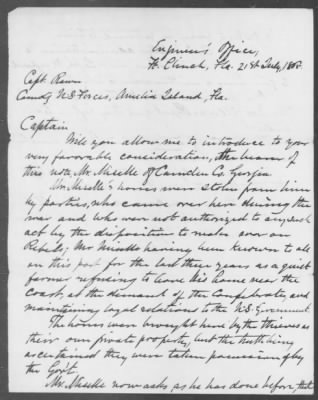 Engineer's Office,
Ft. Clinch, Fla. 21st July, 186
Capt. Rawn
Comdg U.S. Forces, Amelia Island, Fla.
Captain
Will you allow me to introduce to your
very favorable consideration, the bearer of
this note, Mr. Mizelle of Camden Co. Georgia
Mr. Mizelle's horses were stolen from him
by parties, who came over here during the
war and who were not authorized to any such
act by the disposition to make war on
Rebels; Mr Mizelle having been known to all
on this post for the last three years as a quiet
farmer refusing to leave his home near the
coast at the demand of the Confederates, and
maintaining loyal relations to the U.S. Government.
The horses were brought here by the thieves as
their own private property, but the truth being
ascertained they were taken possession of by
the Gov't.
Mr. Mizelle now asks, as he has done before, that